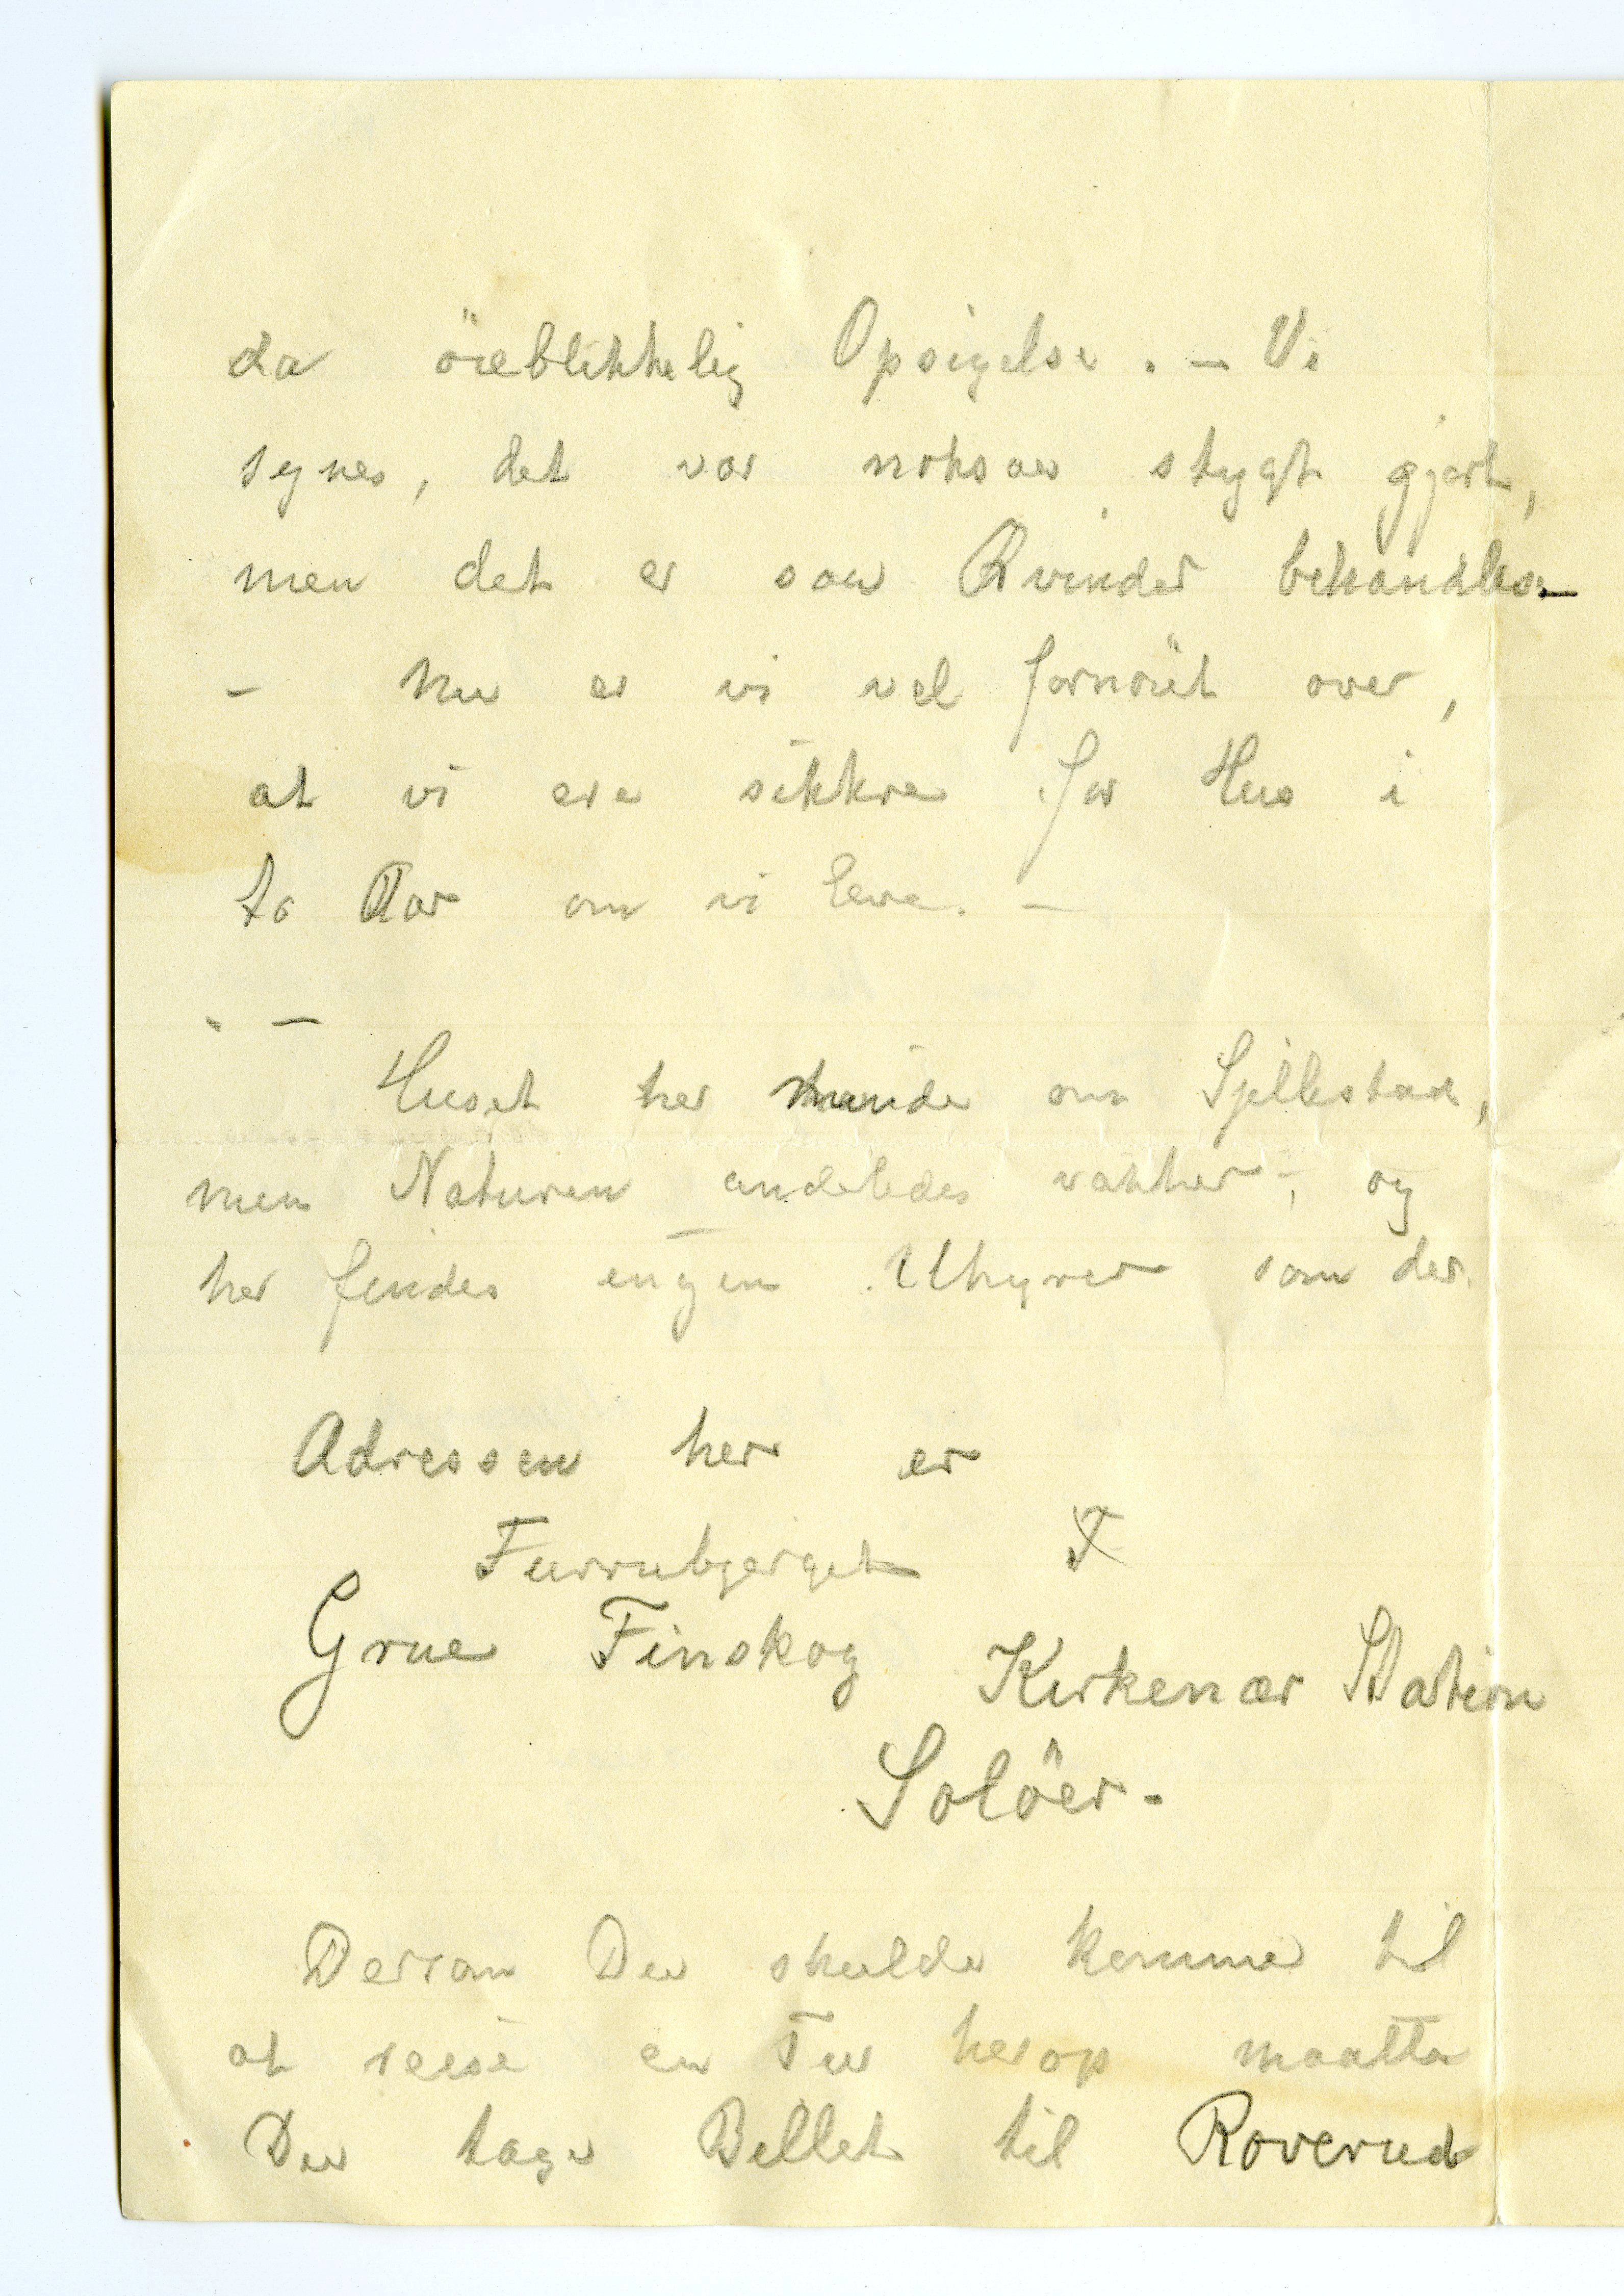 da öieblikkelig Opsigelse. — Vi
synes, det var noksaa stygt gjort,
men det er saa Kvinder behandles. —
- Nu er vi vel fornöiet over,
at vi ere sikkre for Hus i
to Aar om vi leve. —
- —
Huset her minder om Spillestad,
men Naturen anderledes vakker -, og
her findes ingen Uhyrer som der.
Adressen her er
Furruberget
Grue Finskog Kirkenær Station
Solöer -
Dersom Du skulde komme til
at reise en Tur herop maatte
Du tage Billet til Roverud